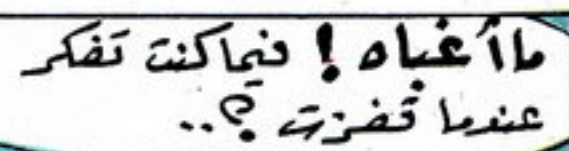 ما أغباه ! فيما كنت تفكر
عندما قفزت ؟..